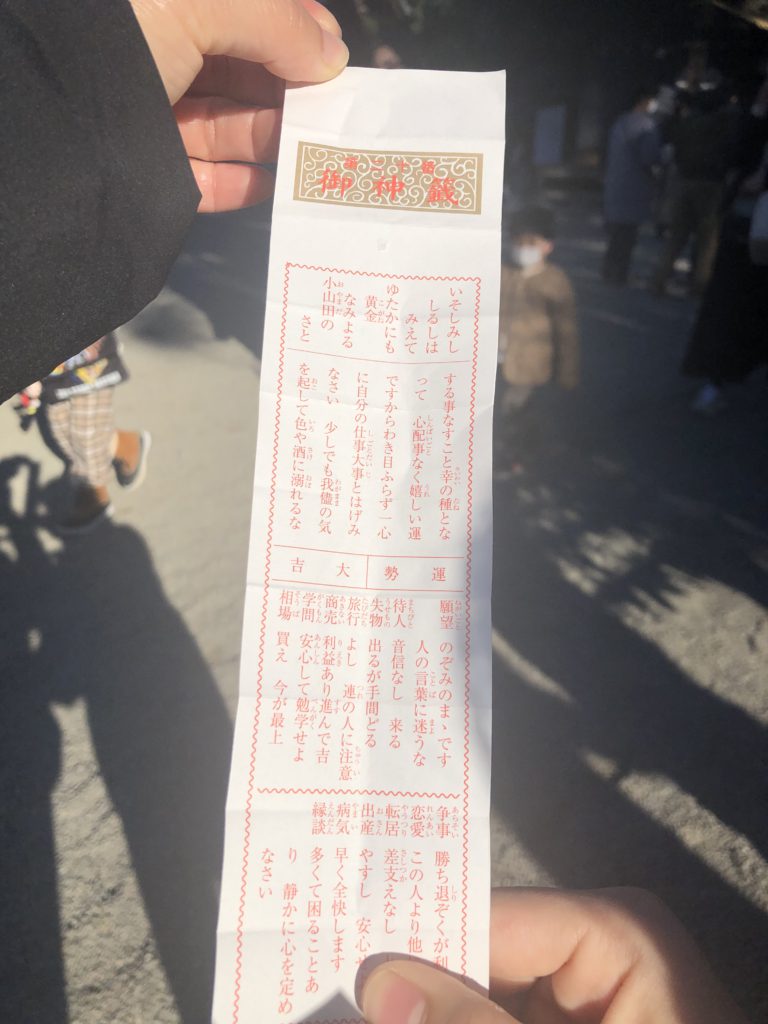 第二十番
御神籤
いそしみし
しるしは
みえて
ゆたかにも
黄金
なみよる
小山田の
さと
する事なすこと幸の種とな
って 心配事なく嬉しい運
ですからわき目ふらず一心
に自分の仕事大事とはげみ
なさい 少しでも我儘の気
を起して色や酒に溺れるな
運勢 大吉
願望 のぞみのまゝです
人の言葉に迷うな
待人 音信なし 来る
失物 出るが手間どる
旅行 よし 連の人に注意
商売 利益あり進んで吉
学問 安心して勉学せよ
相場 買え 今が最上
争事 勝ち退ぞくが利
恋愛 この人より他
転居 差支えなし
出産 やすし 安心せ
病気 早く全快します
縁談 多くて困ることあ
り 静かに心を定め
なさい